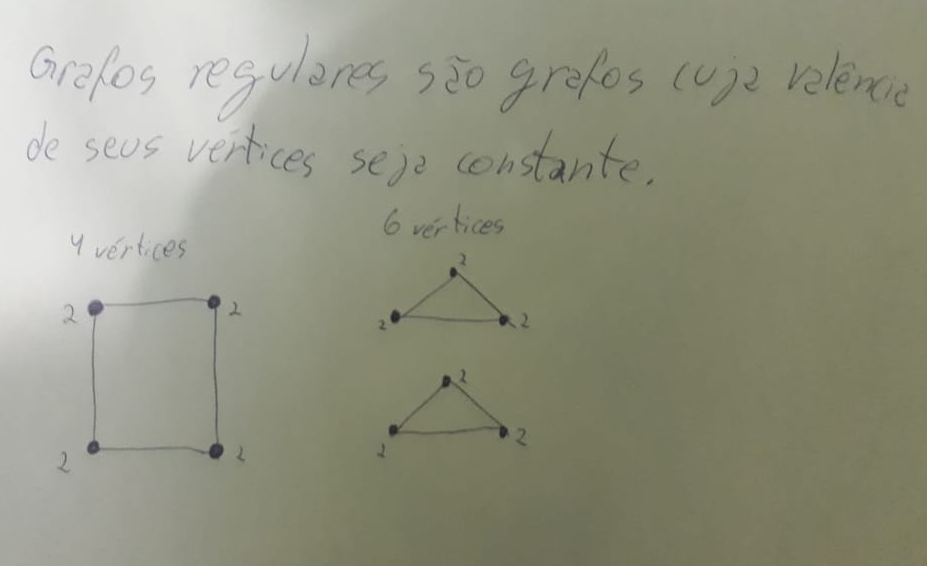 Grafos regulares são grafos cuja valência
de seus vértices seja constante.
4 vértices
6 vértices
2
2 2
2 2
2
2 2
2 2
2 2